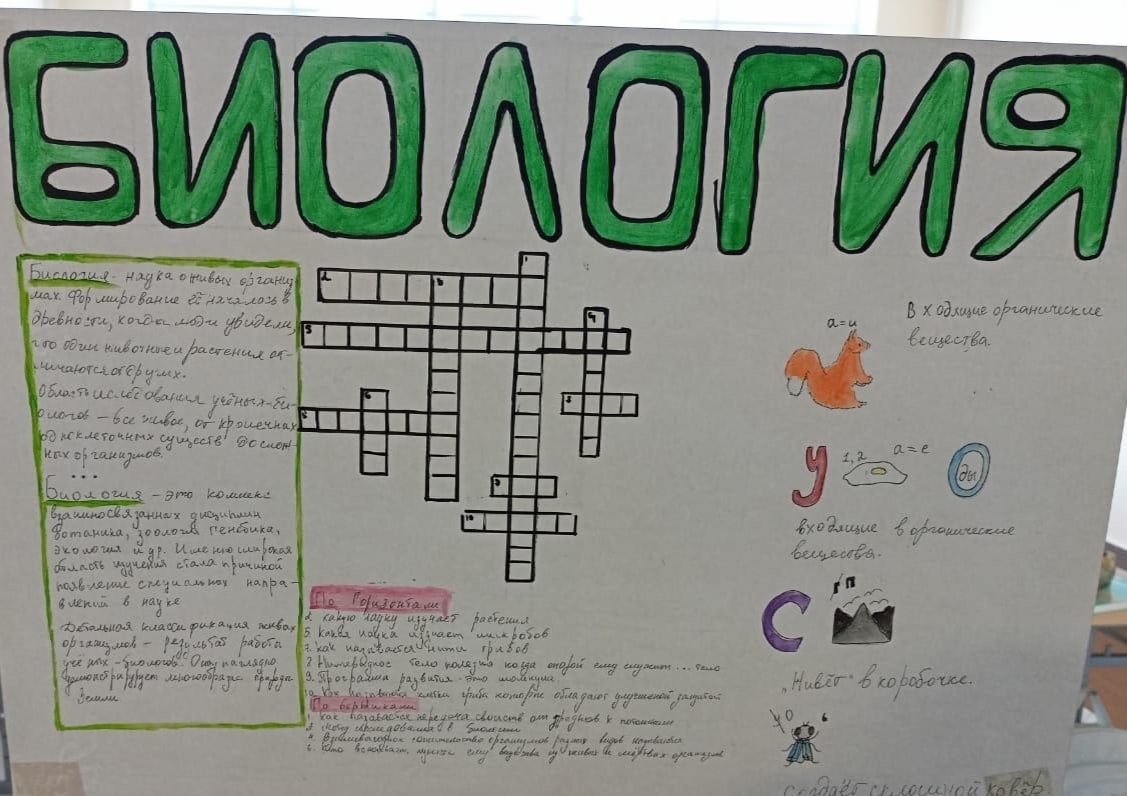 БИОЛОГИЯ
Биология - наука о живых организ
мах. Формирование её началось в
древности, когда люди увидели,
что одни животные и растения от-
личаются от других.
Область исследования учёных-би-
ологов - все живое, от крошечных
одноклеточных существ до слож-
ных организмов.
...
Биология - это комплекс
взаимосвязанных дисциплин
ботаника, зоология генетика,
экология и др. Именно широкая
область изучения стала причиной
появление специальных напра-
влений в науке
Детальная классификация живых
организмов - результат работы
учёных-биологов. Она наглядно
демонстрирует многообразие природы
Земли
1
2
3
4
5
6
7
8
9
10
По горизонтали
2. какую науку изучает растения
5. какая наука изучает микробов
7. как называется нити грибов
8. тело полезня когда опорой ему служит ... тело
9. Программа развития - это молекула
10. как называют клетки гриба которые обладают улучшеной защитой
По вертикали
1. как называется передача свойств от родителей к потомкам
3. метод исследования в биологии
4. сожительство организмов разных видов называется
6. вещества из живых и мёртвых организмов
а=и
Входящие органические
вещества.
У 1,2 а=е О ды
входящие в органические
вещества.
С г п
„Живёт" в коробочке.
У О 6
создаёт сплошной ковёр